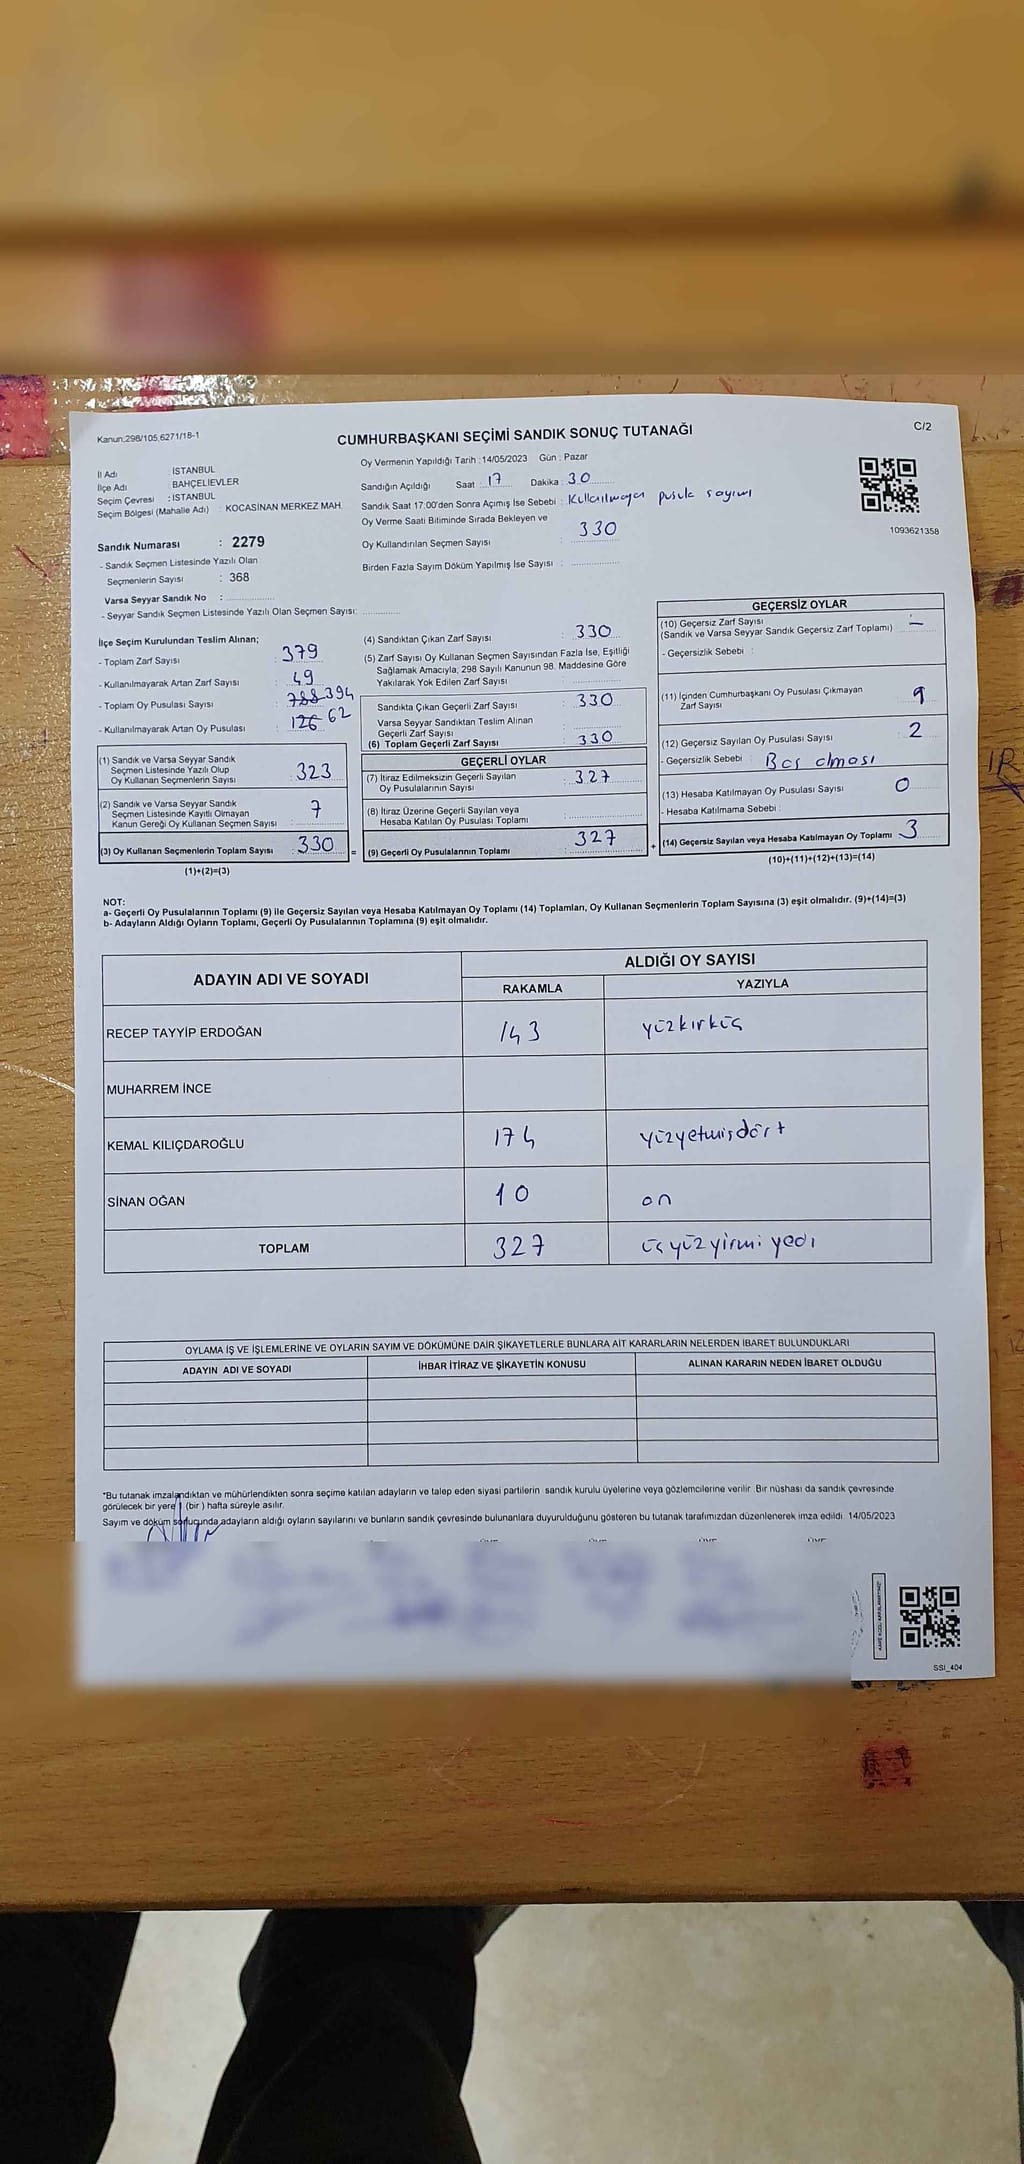 Kanun:298/105,6271/18-1
C/2
CUMHURBAŞKANI SEÇİMİ SANDIK SONUÇ TUTANAĞI
İl Adı : İSTANBUL
İlçe Adı : BAHÇELİEVLER
Seçim Çevresi : İSTANBUL
Seçim Bölgesi (Mahalle Adı) : KOCASİNAN MERKEZ MAH.
Sandık Numarası : 2279
- Sandık Seçmen Listesinde Yazılı Olan
Seçmenlerin Sayısı : 368
Varsa Seyyar Sandık No :
- Seyyar Sandık Seçmen Listesinde Yazılı Olan Seçmen Sayısı:
Oy Vermenin Yapıldığı Tarih : 14/05/2023 Gün : Pazar
Sandığın Açıldığı Saat : 17 Dakika : 30
Sandık Saat 17:00'den Sonra Açımış İse Sebebi : Kullanılmayan pusula sayımı
Oy Verme Saati Bitiminde Sırada Bekleyen ve
Oy Kullandırılan Seçmen Sayısı : 330
Birden Fazla Sayım Döküm Yapılmış İse Sayısı :
1093621358
İlçe Seçim Kurulundan Teslim Alınan;
- Toplam Zarf Sayısı : 379
- Kullanılmayarak Artan Zarf Sayısı : 49
- Toplam Oy Pusulası Sayısı : 788 394
- Kullanılmayarak Artan Oy Pusulası : 126 62
(1) Sandık ve Varsa Seyyar Sandık
Seçmen Listesinde Yazılı Olup
Oy Kullanan Seçmenlerin Sayısı : 323
(2) Sandık ve Varsa Seyyar Sandık
Seçmen Listesinde Kayıtlı Olmayan
Kanun Gereği Oy Kullanan Seçmen Sayısı : 7
(3) Oy Kullanan Seçmenlerin Toplam Sayısı : 330 =
(1)+(2)=(3)
(4) Sandıktan Çıkan Zarf Sayısı : 330
(5) Zarf Sayısı Oy Kullanan Seçmen Sayısından Fazla İse, Eşitliği
Sağlamak Amacıyla, 298 Sayılı Kanunun 98. Maddesine Göre
Yakılarak Yok Edilen Zarf Sayısı :
Sandıkta Çıkan Geçerli Zarf Sayısı : 330
Varsa Seyyar Sandıktan Teslim Alınan
Geçerli Zarf Sayısı :
(6) Toplam Geçerli Zarf Sayısı : 330
GEÇERLİ OYLAR
(7) İtiraz Edilmeksizin Geçerli Sayılan
Oy Pusulalarının Sayısı : 327
(8) İtiraz Üzerine Geçerli Sayılan veya
Hesaba Katılan Oy Pusulası Toplamı :
(9) Geçerli Oy Pusulalarının Toplamı : 327 +
GEÇERSİZ OYLAR
(10) Geçersiz Zarf Sayısı : -
(Sandık ve Varsa Seyyar Sandık Geçersiz Zarf Toplamı)
- Geçersizlik Sebebi :
(11) İçinden Cumhurbaşkanı Oy Pusulası Çıkmayan
Zarf Sayısı :
(12) Geçersiz Sayılan Oy Pusulası Sayısı : 2
- Geçersizlik Sebebi : Boş olması
(13) Hesaba Katılmayan Oy Pusulası Sayısı : 0
- Hesaba Katılmama Sebebi :
(14) Geçersiz Sayılan veya Hesaba Katılmayan Oy Toplamı : 3
(10)+(11)+(12)+(13)=(14)
NOT:
a- Geçerli Oy Pusulalarının Toplamı (9) ile Geçersiz Sayılan veya Hesaba Katılmayan Oy Toplamı (14) Toplamları, Oy Kullanan Seçmenlerin Toplam Sayısına (3) eşit olmalıdır. (9)+(14)=(3)
b- Adayların Aldığı Oyların Toplamı, Geçerli Oy Pusulalarının Toplamına (9) eşit olmalıdır.
ADAYIN ADI VE SOYADI ALDIĞI OY SAYISI
RAKAMLA YAZIYLA
RECEP TAYYİP ERDOĞAN 143 yüzkırküç
MUHARREM İNCE
KEMAL KILIÇDAROĞLU 174 yüzyetmişdört
SİNAN OĞAN 10 on
TOPLAM 327 üçyüzyirmi yedi
OYLAMA İŞ VE İŞLEMLERİNE VE OYLARIN SAYIM VE DÖKÜMÜNE DAİR ŞİKAYETLERLE BUNLARA AİT KARARLARIN NELERDEN İBARET BULUNDUKLARI
ADAYIN ADI VE SOYADI İHBAR İTİRAZ VE ŞİKAYETİN KONUSU ALINAN KARARIN NEDEN İBARET OLDUĞU
*Bu tutanak imzalandıktan ve mühürlendikten sonra seçime katılan adayların ve talep eden siyasi partilerin sandık kurulu üyelerine veya gözlemcilerine verilir. Bir nüshası da sandık çevresinde
görülecek bir yere (bir ) hafta süreyle asılır.
Sayım ve döküm sonucunda adayların aldığı oyların sayılarını ve bunların sandık çevresinde bulunanlara duyurulduğunu gösteren bu tutanak tarafımızdan düzenlenerek imza edildi. 14/05/2023
SSI_404